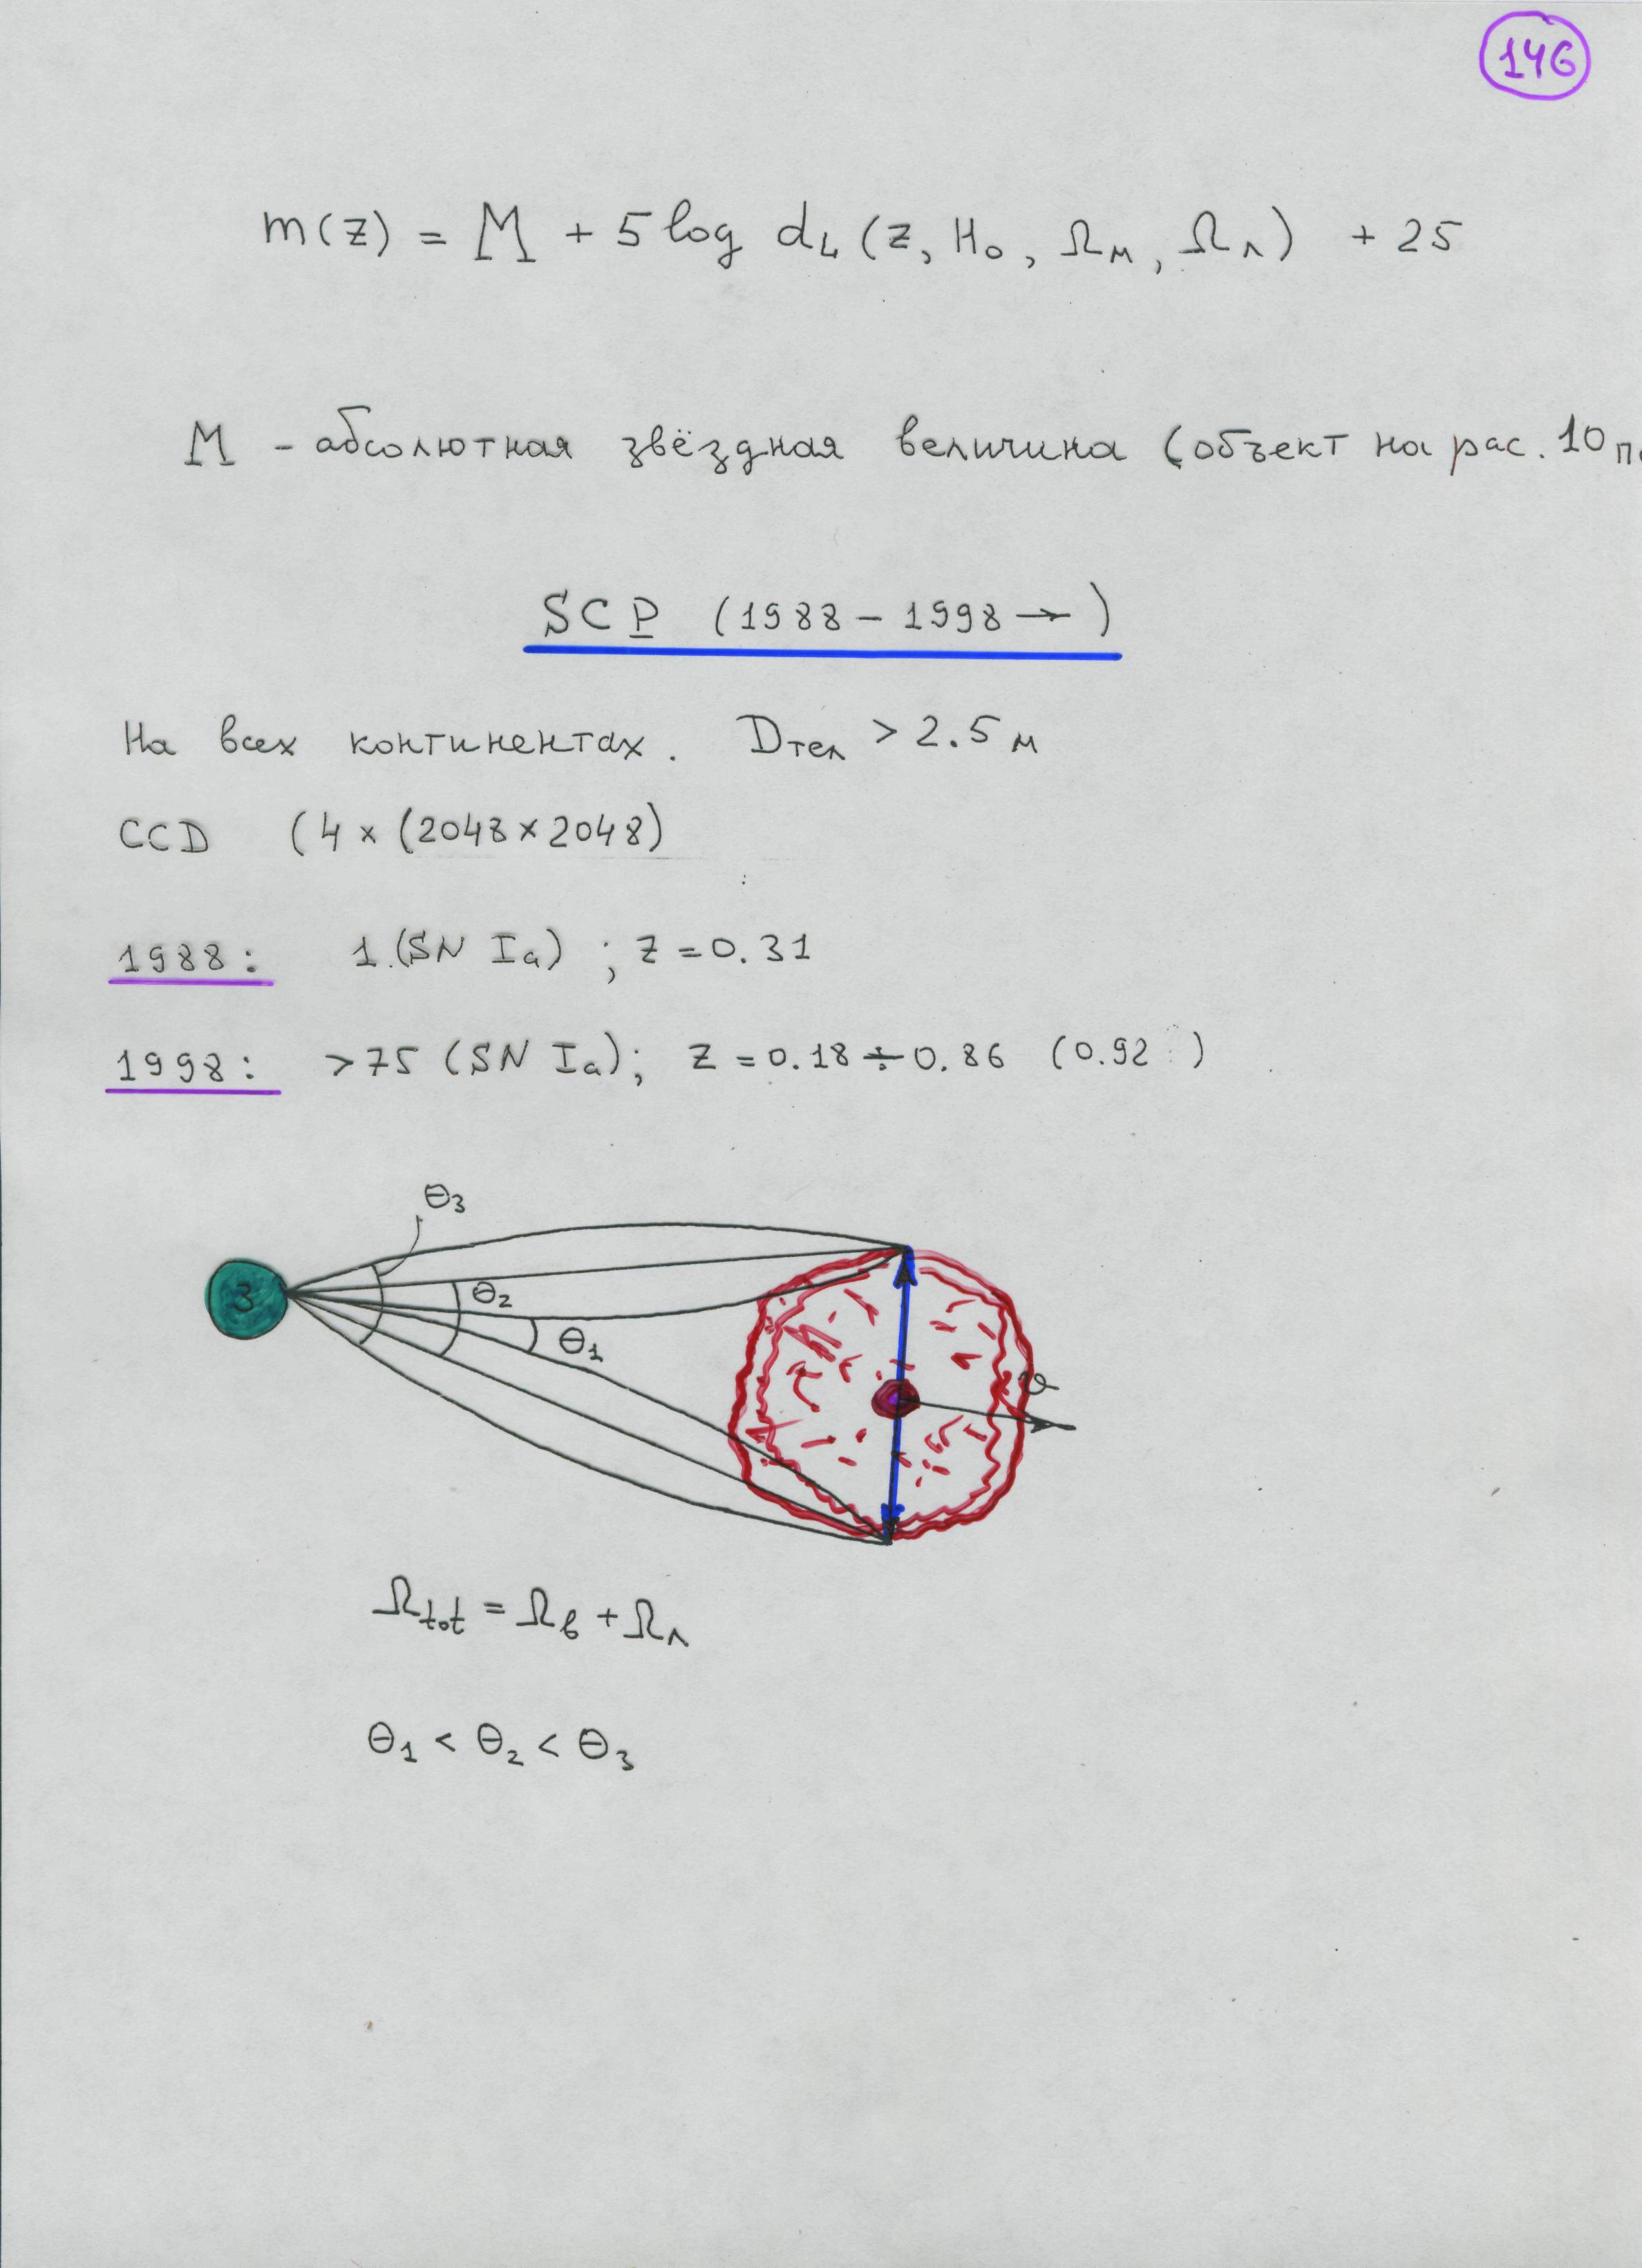 146
m(z) = M + 5 log d_L (z, H₀, Ω_M, Ω_Λ) + 25
M - абсолютная звёздная величина (объект на рас. 10 п
SCP (1988 – 1998 → )
На всех континентах. Dтел > 2.5 м
CCD (4 × (2048 × 2048)
1988: 1 (SN Ia) ; z = 0.31
1998: >75 (SN Ia); z = 0.18 ÷ 0.86 (0.92 )
θ₃
З
θ₂
θ₁
v
Ω_tot = Ω_в + Ω_Λ
θ₁ < θ₂ < θ₃